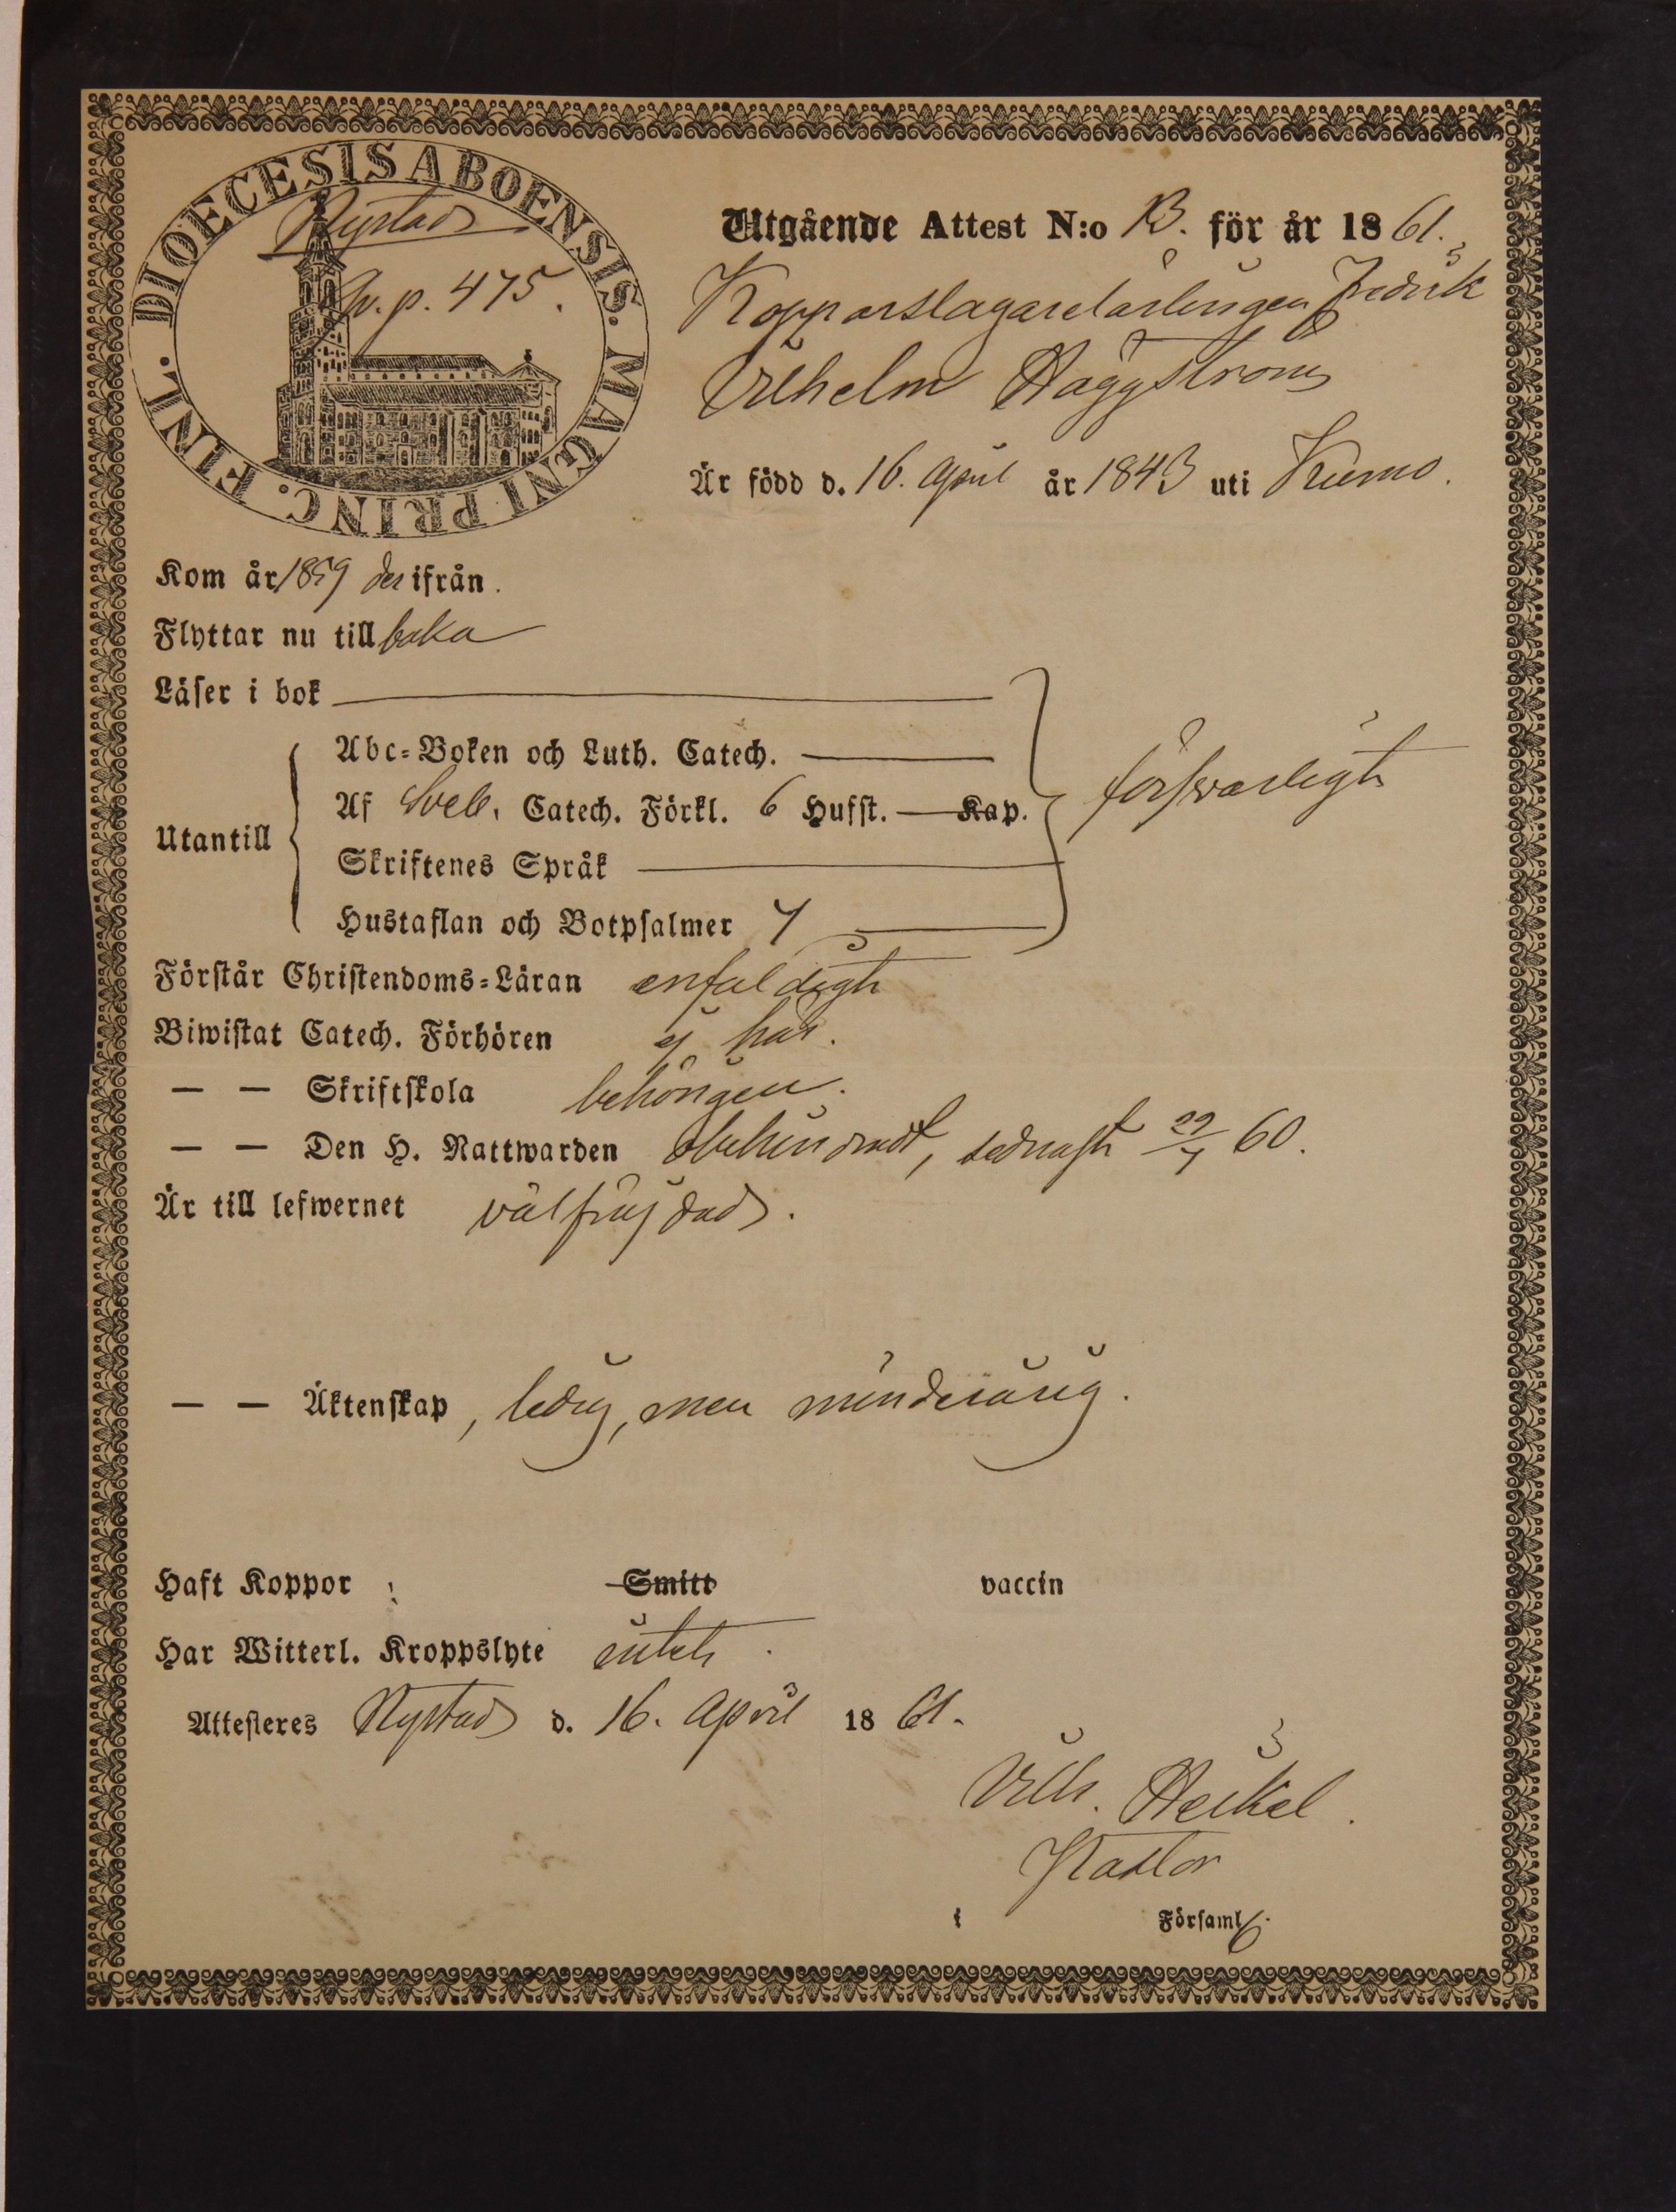 DIOECESIS ABOENSIS. MAGNI PRINC. FINL.
Nystad
Sv. p. 475.
Utgående Attest N:o 13. för år 1861.
Kopparslagarelärlingen Fredrik
Vilhelm Häggström
Är född d. 16. April år 1843 uti Kumo.
Kom år 1859 der ifrån.
Flyttar nu till baka
Läser i bok
Abc-Boken och Luth. Catech.
Af Sveb. Catech. Förkl. 6 Hufst. Kap.
försvarligt
Utantill
Skriftenes Språk
Hustaflan och Botpsalmer 7
Förstår Christendoms-Läran enfaldigt
Biwistat Catech. Förhören ej här.
— — Skriftskola behörigen.
— — Den H. Nattwarden obehindradt, sednast 22/7 60.
Är till lefwernet välfrejdad.
— — Äktenskap, ledig, men minderårig.
Haft Koppor Smitt vaccin
Har Witterl. Kroppslyte intet.
Attesteres Nystad d. 16. April 1861.
Vilh. Heikel.
Pastor
i Församl.